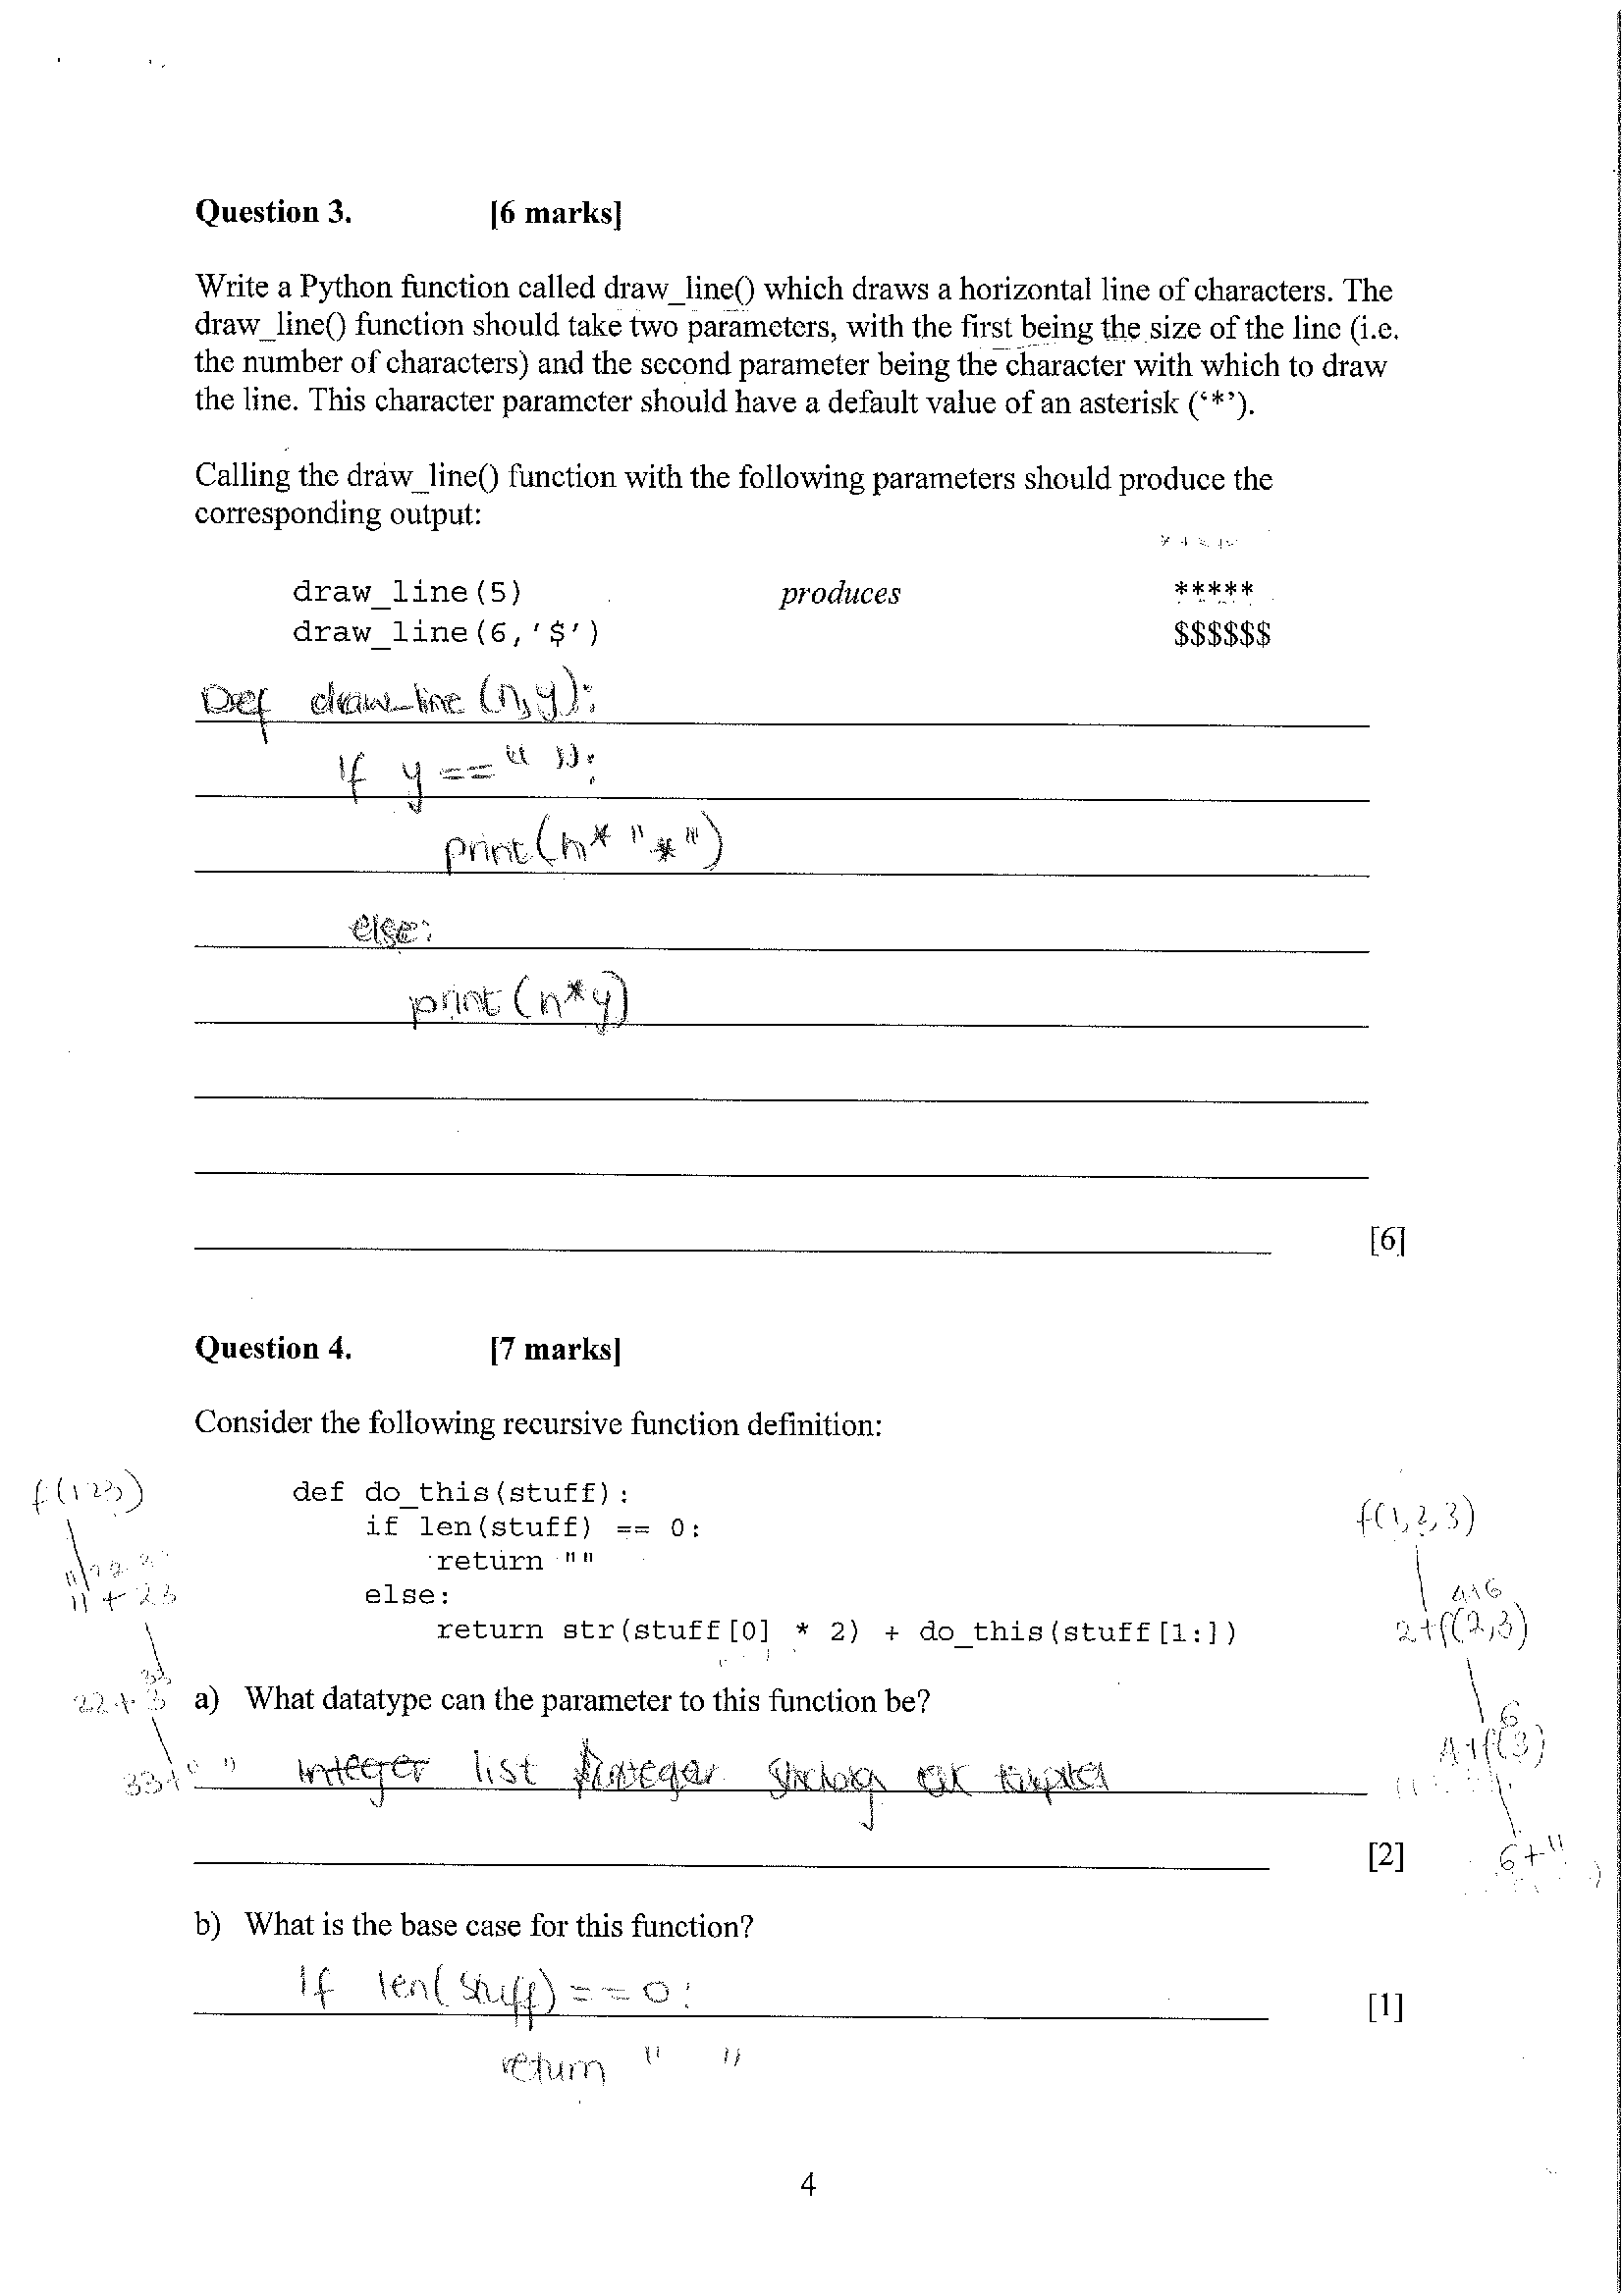 Question 3. [6 marks]
Write a Python function called draw_line() which draws a horizontal line of characters. The
draw_line() function should take two parameters, with the first being the size of the line (i.e.
the number of characters) and the second parameter being the character with which to draw
the line. This character parameter should have a default value of an asterisk (‘*’).
Calling the draw_line() function with the following parameters should produce the
corresponding output:
draw_line(5) produces *****
draw_line(6,'$') $$$$$$
Def draw_line (n,y):
If y == " ":
print(n* "*")
else:
print (n*y)
[6]
Question 4. [7 marks]
Consider the following recursive function definition:
def do_this(stuff):
if len(stuff) == 0:
return ""
else:
return str(stuff[0] * 2) + do_this(stuff[1:])
f(123)
11 + 23
33
22 + 3
33+" "
f(1,2,3)
4+6
2+f(2,3)
6
4+f(3)
6+"
a) What datatype can the parameter to this function be?
Integer list
[2]
b) What is the base case for this function?
If len(stuff) == 0:
[1]
return " "
4